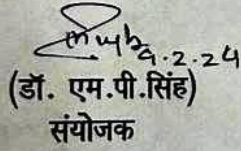 9.2.24
(डॉ. एम.पी.सिंह)
संयोजक